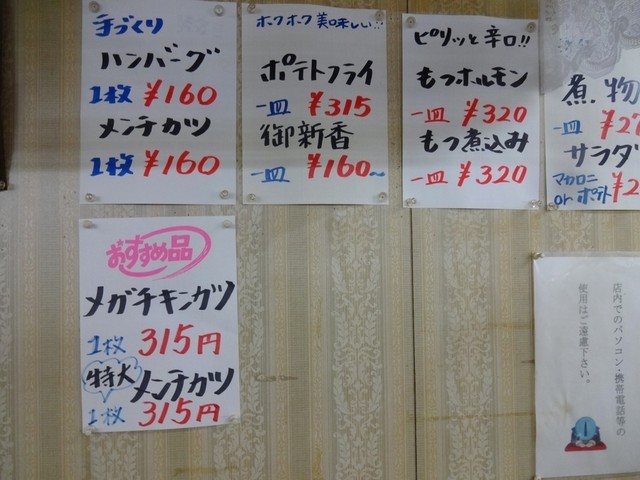 手づくり
ハンバーグ
1枚 ¥160
メンチカツ
1枚 ¥160
ホクホク美味しい!!
ポテトフライ
一皿 ¥315
御新香
一皿 ¥160～
ピリッと辛口!!
もつホルモン
一皿 ¥320
もつ煮込み
一皿 ¥320
煮物
一皿 ¥2
サラダ
マカロニ
orポテト ¥2
おすすめ品
メガチキンカツ
1枚 315円
特大 メンチカツ
1枚 315円
店内でのパソコン・携帯電話等の
使用はご遠慮下さい。